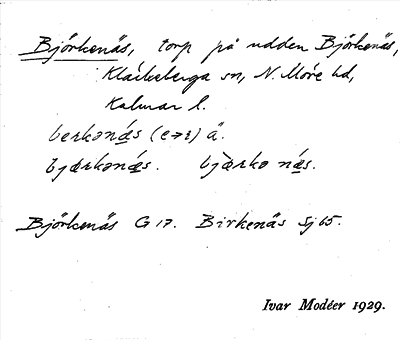 Björkenäs, torp på udden Björkenäs,
Kläckeberga sn, N. Möre hd,
Kalmar l.
berkonä́s (e→i) ä.
bjærkonǽs. bjæ̀rko nä́s.
Björkenäs G 17. Birkenäs Sj 65.
Ivar Modéer 1929.